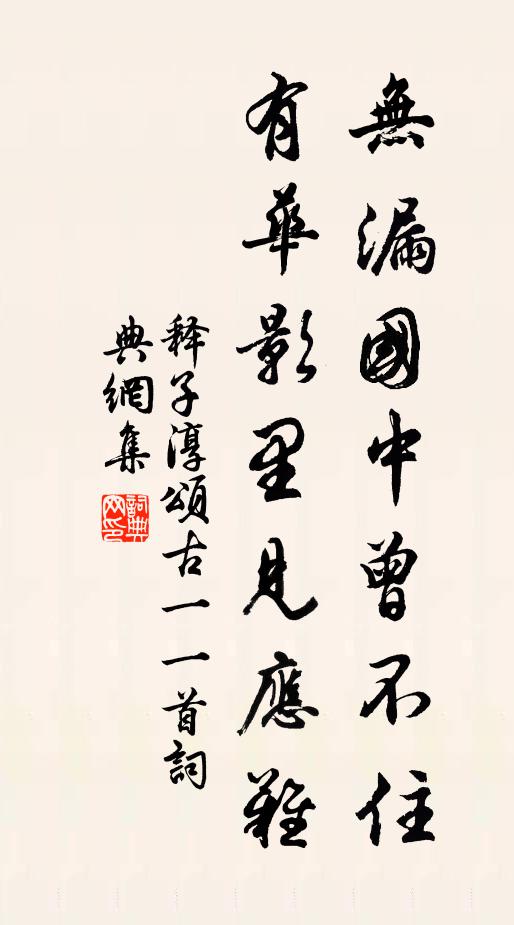 無漏國中曾不住
有華影里見應難
釋子淳頌古一一首詞
典網集
詞典網印